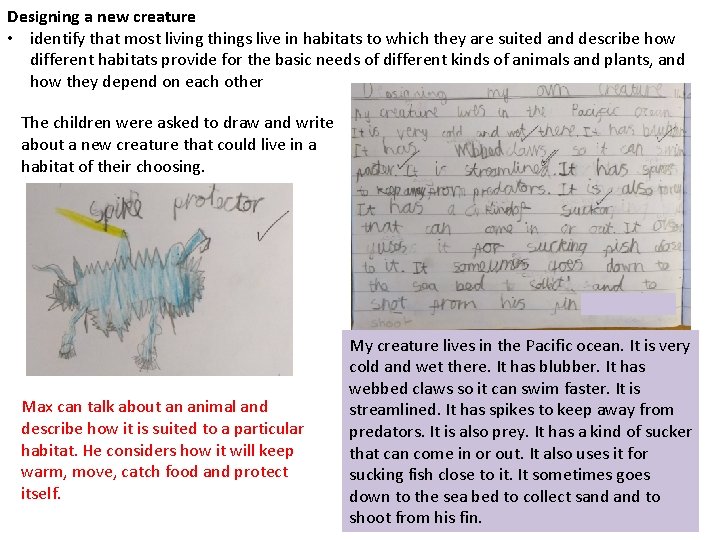 Designing a new creature
• identify that most living things live in habitats to which they are suited and describe how
different habitats provide for the basic needs of different kinds of animals and plants, and
how they depend on each other
The children were asked to draw and write
about a new creature that could live in a
habitat of their choosing.
spike protector
Max can talk about an animal and
describe how it is suited to a particular
habitat. He considers how it will keep
warm, move, catch food and protect
itself.
Designing my own creature
My creature lives in the Pacific ocean
It is very cold and wet there. It has blubber
It has webbed claws so it can swim
faster. It is streamlined. It has spikes
to keep away from predators. It is also prey.
It has a kind of sucker
that can come in or out. It
it for sucking fish close
to it. It sometimes goes down to
the sea bed to collect and to
shot from his fin
shoot
My creature lives in the Pacific ocean. It is very
cold and wet there. It has blubber. It has
webbed claws so it can swim faster. It is
streamlined. It has spikes to keep away from
predators. It is also prey. It has a kind of sucker
that can come in or out. It also uses it for
sucking fish close to it. It sometimes goes
down to the sea bed to collect sand and to
shoot from his fin.